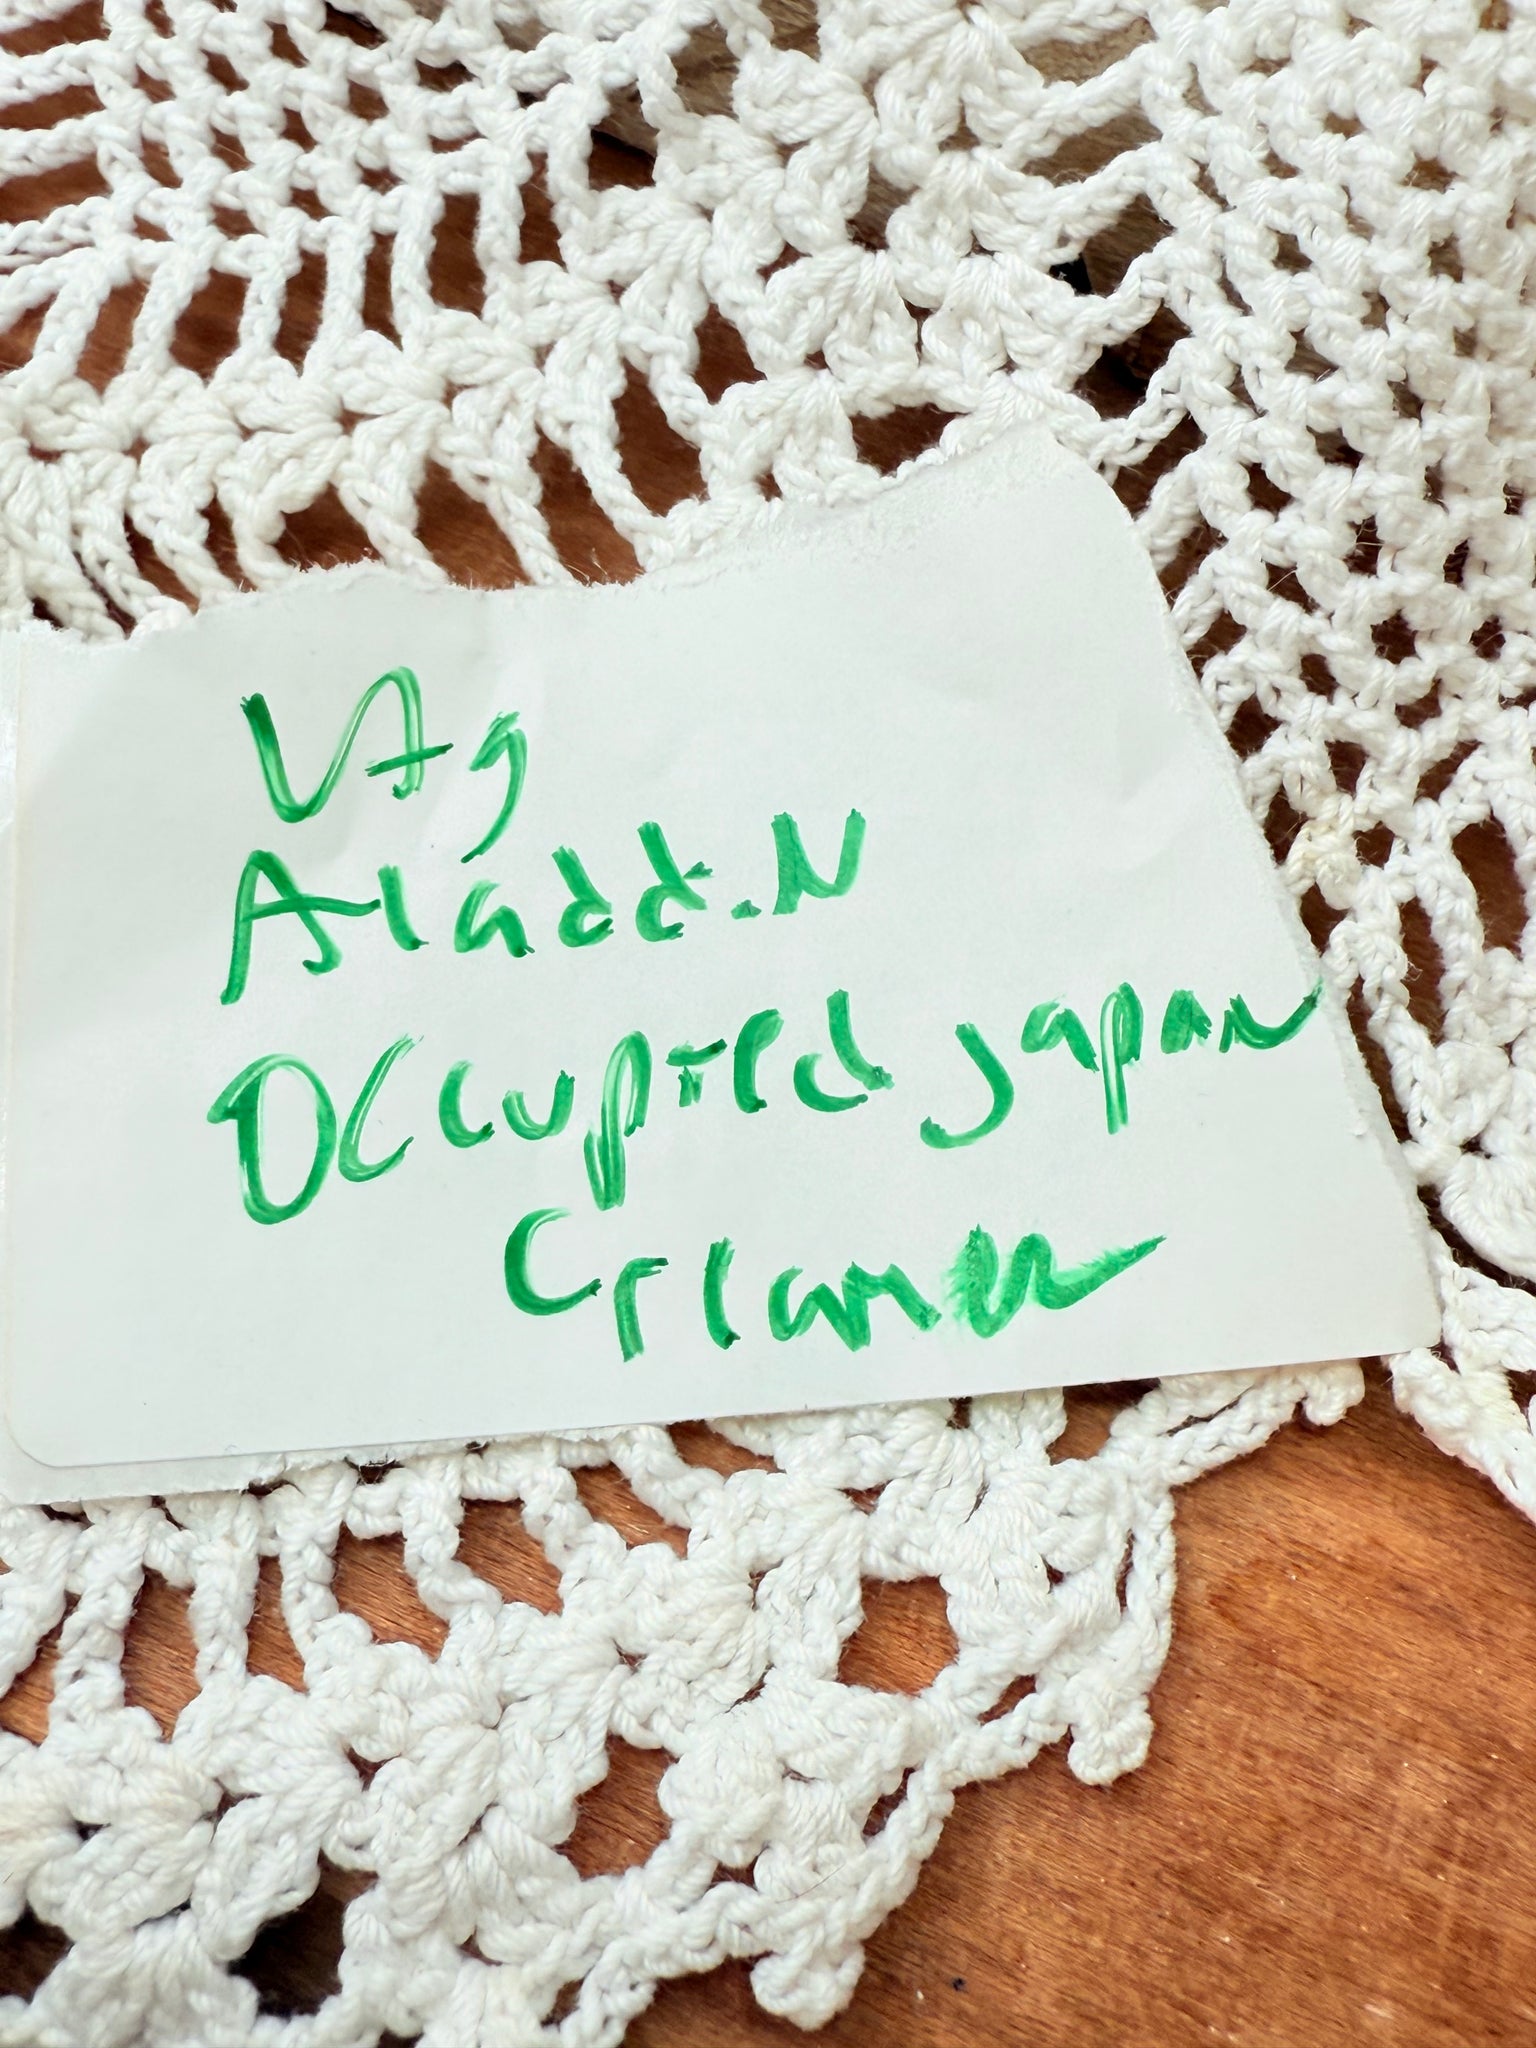 Vtg
Aladdin
Occupied Japan
Creamer